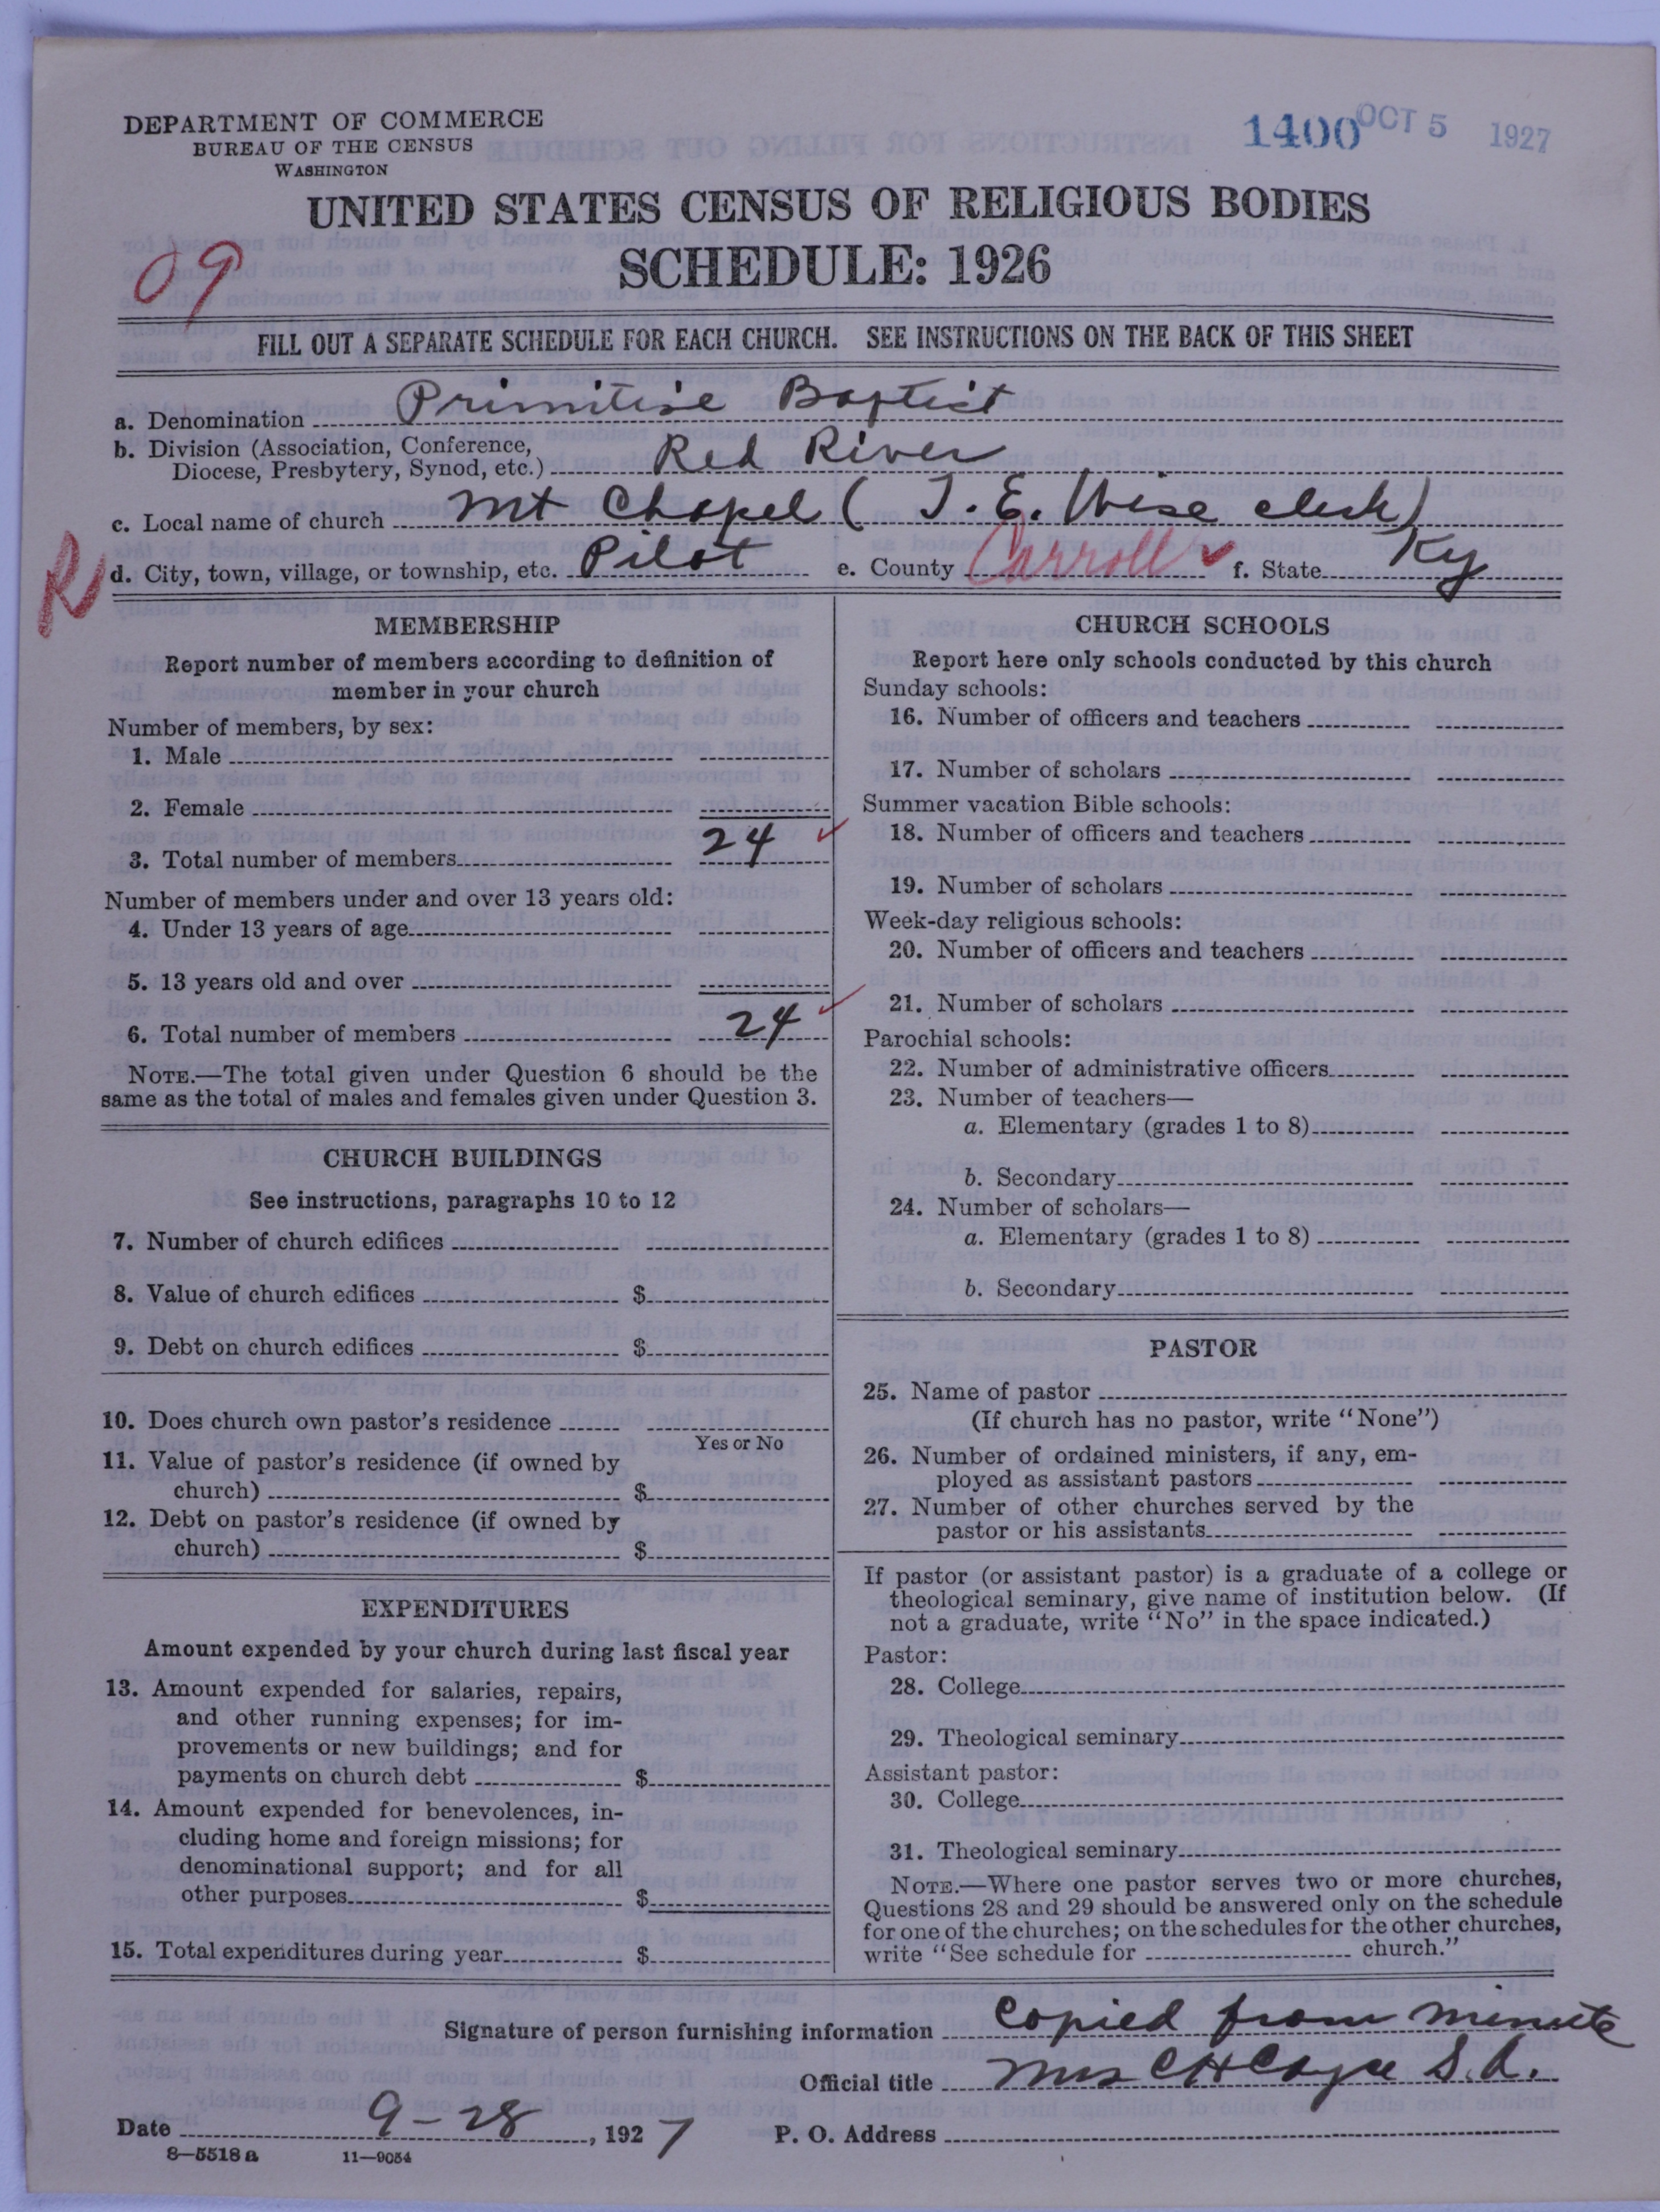 DEPARTMENT OF COMMERCE
BUREAU OF THE CENSUS
WASHINGTON
1400 OCT 5 1927
UNITED STATES CENSUS OF RELIGIOUS BODIES
SCHEDULE: 1926
09
FILL OUT A SEPARATE SCHEDULE FOR EACH CHURCH. SEE INSTRUCTIONS ON THE BACK OF THIS SHEET
a. Denomination Primitive Baptist
b. Division (Association, Conference,
Diocese, Presbytery, Synod, etc.) Red River
c. Local name of church Mt Chapel ( J. E. Wise clerk)
R d. City, town, village, or township, etc. Pilot e. County Carroll ✓ f. State Ky
MEMBERSHIP
Report number of members according to definition of
member in your church
Number of members, by sex:
1. Male
2. Female
3. Total number of members 24 ✓
Number of members under and over 13 years old:
4. Under 13 years of age
5. 13 years old and over
6. Total number of members 24 ✓
NOTE.—The total given under Question 6 should be the
same as the total of males and females given under Question 3.
CHURCH BUILDINGS
See instructions, paragraphs 10 to 12
7. Number of church edifices
8. Value of church edifices $
9. Debt on church edifices $
10. Does church own pastor's residence
Yes or No
11. Value of pastor's residence (if owned by
church) $
12. Debt on pastor's residence (if owned by
church) $
EXPENDITURES
Amount expended by your church during last fiscal year
13. Amount expended for salaries, repairs,
and other running expenses; for im-
provements or new buildings; and for
payments on church debt $
14. Amount expended for benevolences, in-
cluding home and foreign missions; for
denominational support; and for all
other purposes $
15. Total expenditures during year $
CHURCH SCHOOLS
Report here only schools conducted by this church
Sunday schools:
16. Number of officers and teachers
17. Number of scholars
Summer vacation Bible schools:
18. Number of officers and teachers
19. Number of scholars
Week-day religious schools:
20. Number of officers and teachers
21. Number of scholars
Parochial schools:
22. Number of administrative officers
23. Number of teachers—
a. Elementary (grades 1 to 8)
b. Secondary
24. Number of scholars—
a. Elementary (grades 1 to 8)
b. Secondary
PASTOR
25. Name of pastor
(If church has no pastor, write "None")
26. Number of ordained ministers, if any, em-
ployed as assistant pastors
27. Number of other churches served by the
pastor or his assistants
If pastor (or assistant pastor) is a graduate of a college or
theological seminary, give name of institution below. (If
not a graduate, write "No" in the space indicated.)
Pastor:
28. College
29. Theological seminary
Assistant pastor:
30. College
31. Theological seminary
NOTE.—Where one pastor serves two or more churches,
Questions 28 and 29 should be answered only on the schedule
for one of the churches; on the schedules for the other churches,
write "See schedule for church."
Signature of person furnishing information Copied from minute
Official title Mrs C H Cayce S. A.
Date 9-28, 1927 P. O. Address
8—5518 a 11—9054